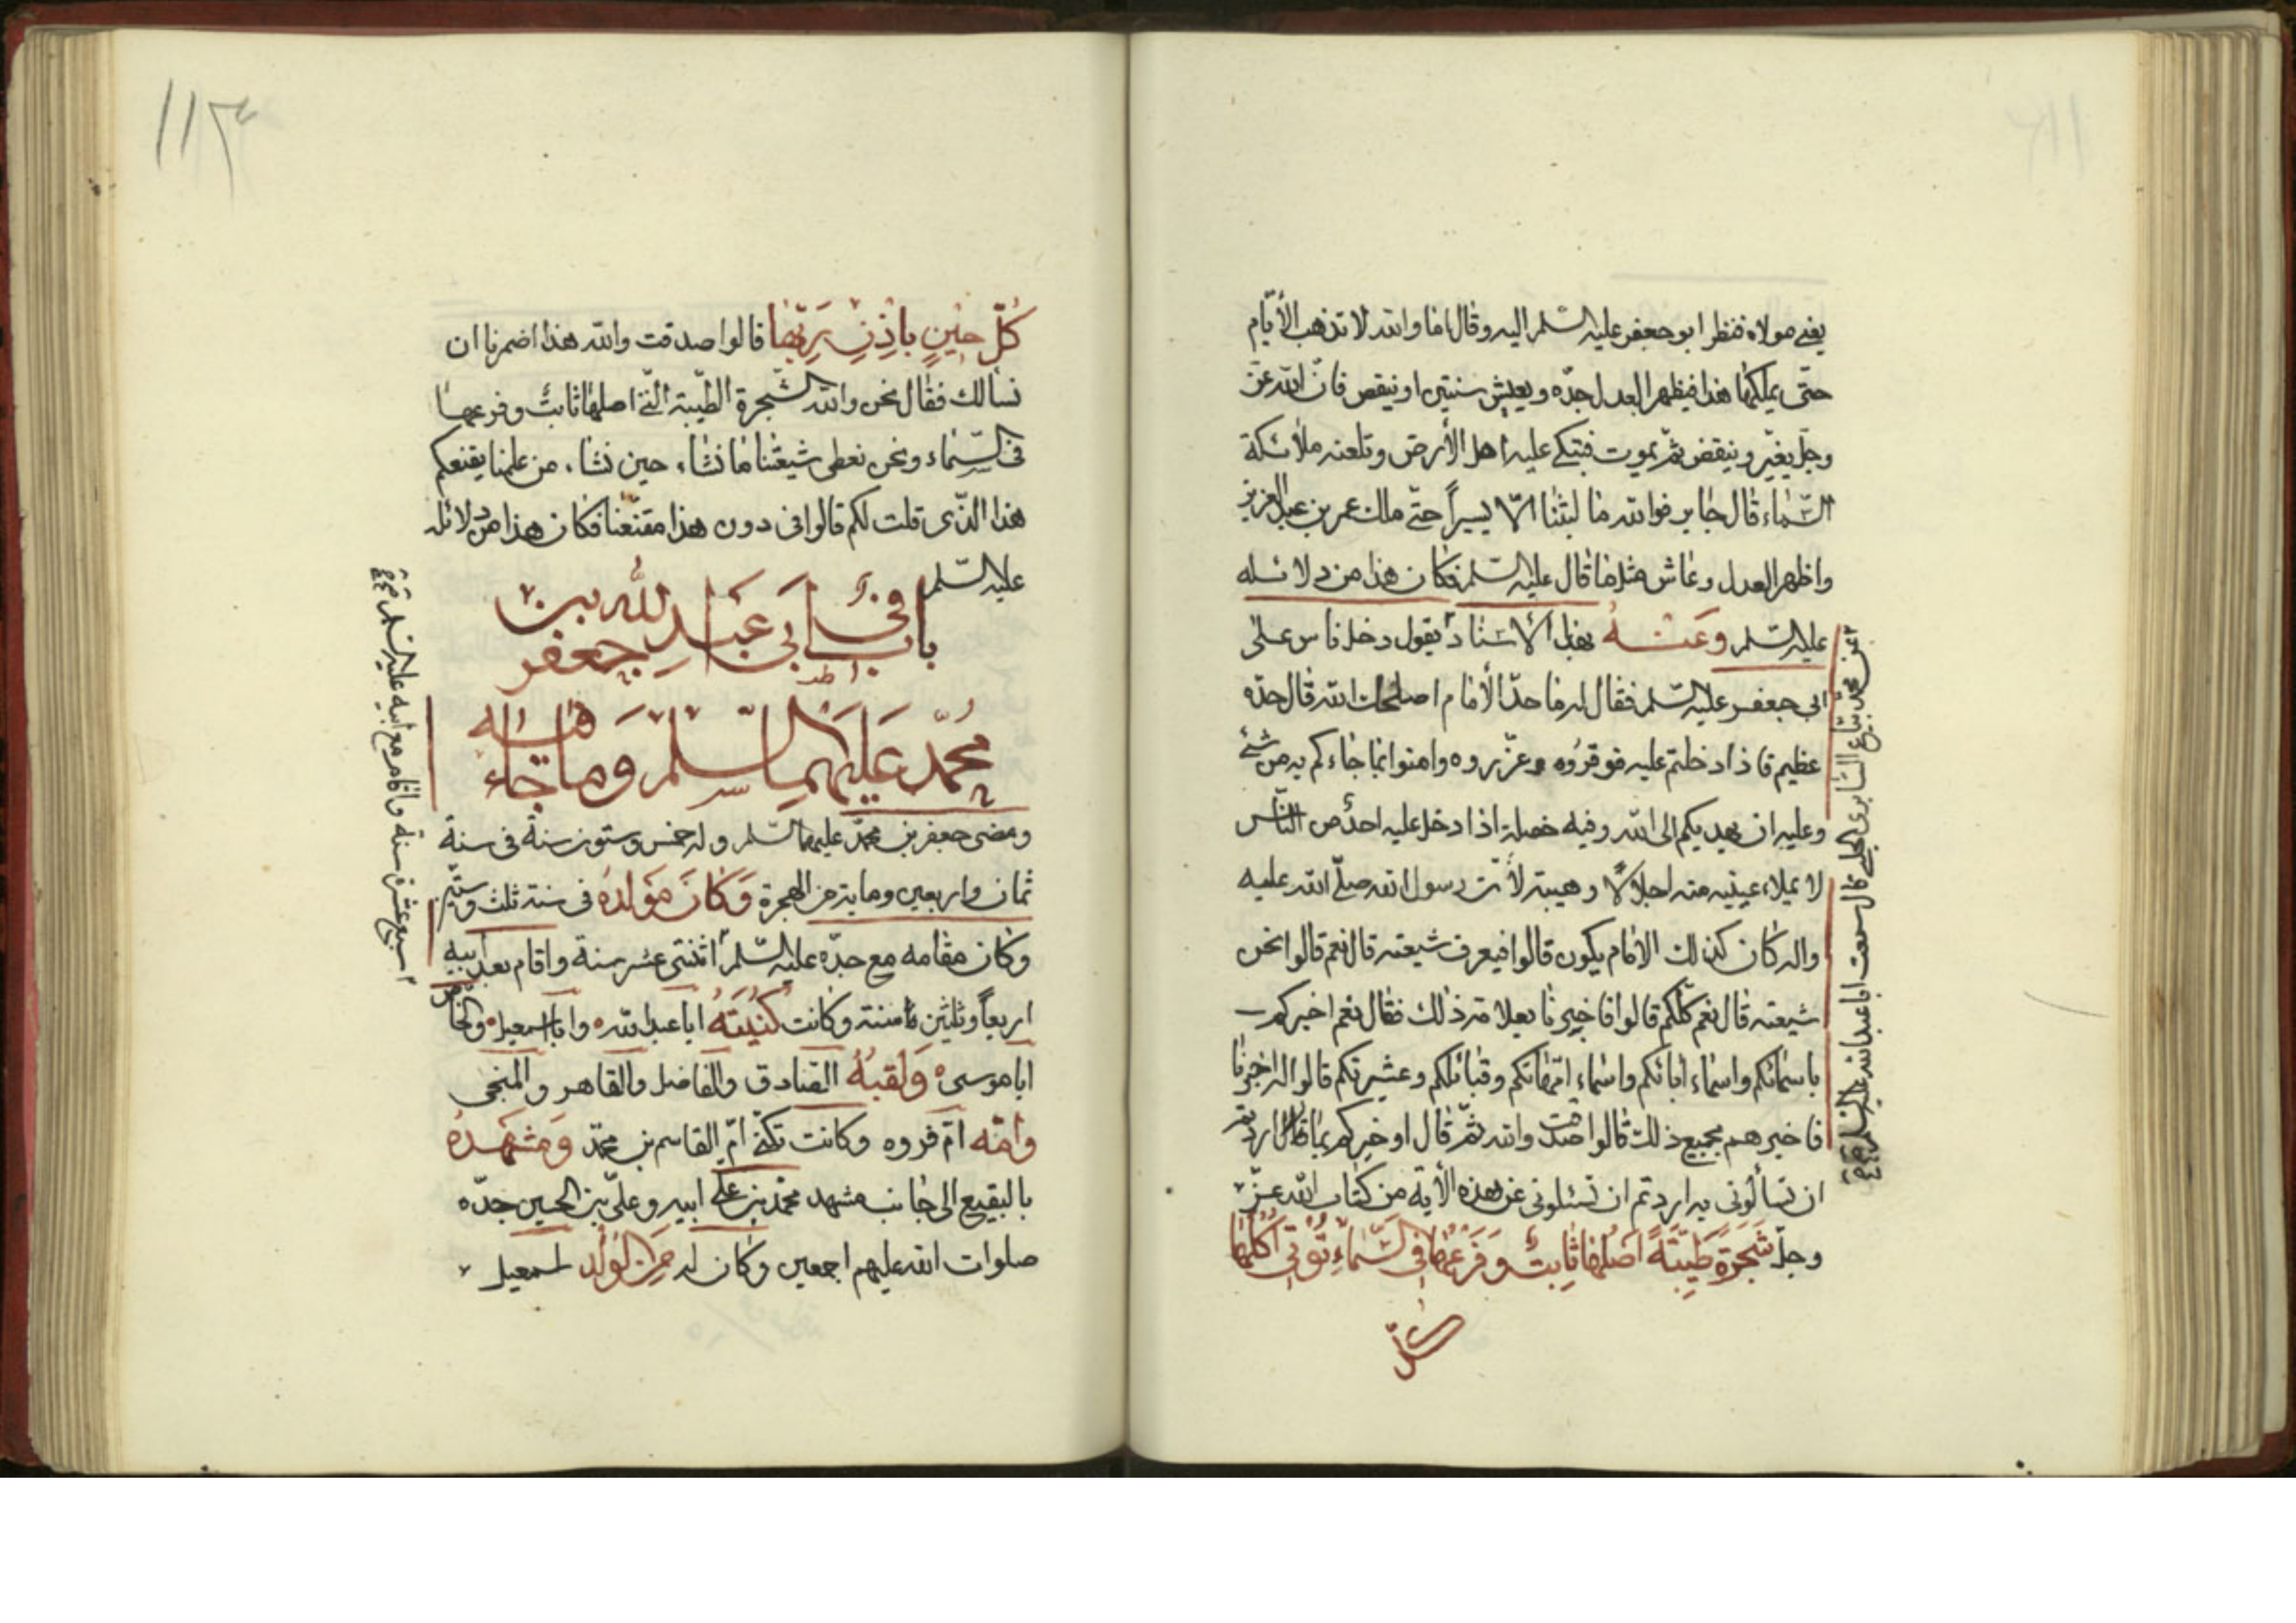 يعني مولاه فنظر ابو جعفر عليه السلم اليه وقال اما والله لا تذهب الأيّام
حتى يملكها هذا فيظهر العدل جدّه ويعيش سنتين او ينقص فانّ الله عزّ
وجلّ يغيّر وينقص ثمّ يموت فتبكي عليه اهل الأرض وتلعنه ملائكة
السّماء قال جابر فوالله ما لبثنا الّا يسيراً حتّى ملك عمر بن عبد العزيز
واظهر العدل وعاش مثل ما قال عليه السلم فكان هذا من دلائله
عليه السّلم وعنه بهذا الاسناد يقول دخل ناس على
ابي جعفر عليه السّلم فقال له ما حدّ الأمام اصلحك الله قال حدّه
عظيم فاذا دخلتم عليه فوقرّوه وعزّروه وامنوا بما جاءكم به من شئ
وعليه ان يهديكم الى الله وفيه خصلة اذا دخل عليه احدٌ من النّاس
لا يملاء عينيه منه اجلالاً وهيبة لأنّ رسول الله صلّى الله عليه
واله كان كذلك الامام يكون قالوا فيعرف شيعته قال نعم قالوا نحن
شيعته قال نعم كلّكم قالوا فاخبرنا بعلامة ذلك فقال نعم اخبركم
باسمائكم واسماء ابائكم واسماء امّهاتكم وقبائلكم وعشيرتكم قالوا له اخبرنا
فاخبرهم بجميع ذلك قالوا صدقت والله ثمّ قال او خبركم بما اردتم
ان تسألوني به اردتم ان تسئلوني عن هذه الأية من كتاب الله عزّ
وجلّ شَجَرَةٍ طَيِّبَةٍ اَصْلُهَا ثَابِتٌ وَفَرْعُهَا فِى السَّمَاءِ تُؤْتِى اُكُلَهَا
كلّ
عن محمّد بيّاع السّابرى قال سمعت ابا عبد الله عليه السلم
١١٣
كُلَّ حِينٍ بِاِذْنِ رَبِّهَا قالوا صدقت والله هذا اضمرنا ان
نسألك فقال نحن والله الشّجرة الطّيبة الّتى اصلها ثابتٌ وفرعها
فى السّماء ونحن نعطى شيعتنا ما نشاء حين نشاء من علمنا يقنعكم
هذا الّذى قلت لكم قالوا فى دون هذا مقنعنا فكان هذا من دلائله
عليه السّلم
باب فى ابى عبد الله بن جعفر
محمّد عليهما السّلم وما جاء فيه
ومضى جعفر بن محمّد عليهما السّلم وله خمس وستّون سنة فى سنة
ثمان واربعين وماية من الهجرة وَكَانَ مَوْلِدُه فى سنة ثلث وثمنين
وكان مقامه مع جدّه عليه السّلم اثنتى عشر سنة واقام بعد ابيه
اربعاً وثلثين سنة وكانت كُنْيَتُهُ ابا عبد الله وابا اسمعيل والخاص
ابا موسى وَلَقَبُهُ الصّادق والفاضل والقاهر والمنجى
وامّه امّ فروه وكانت تكنّى امّ القاسم بن محمّد وَمَشْهَدُهُ
بالبقيع الى جانب مشهد محمّد بن على ابيه وعلىّ بن الحسين جدّه
صلوات الله عليهم اجمعين وكان له مِنَ الوَلَد اسمعيل
واقام مع ابيه عليه السلم سبع عشرة سنة